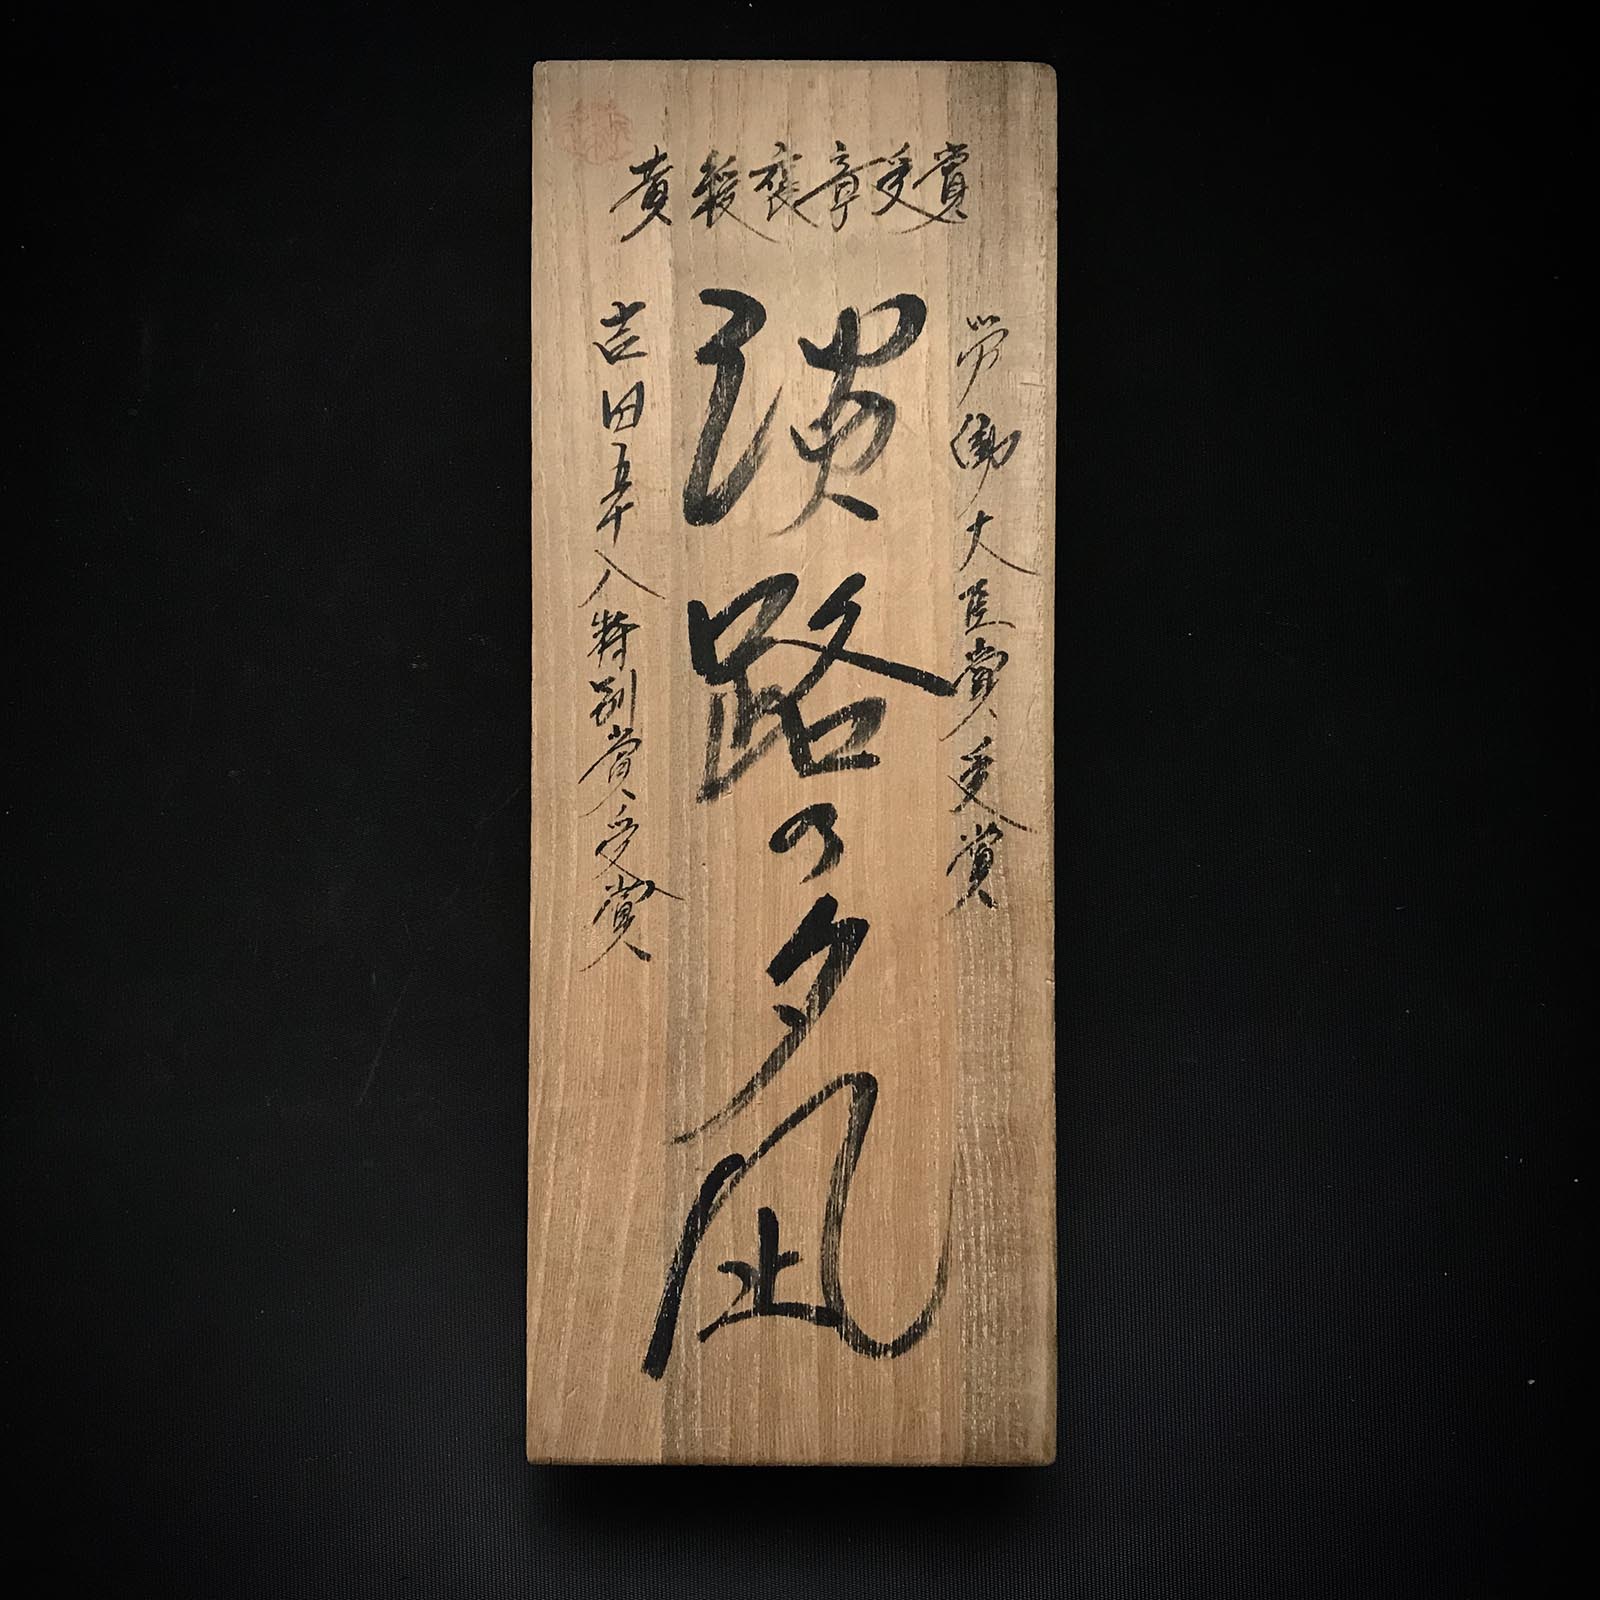 黄綬褒章受賞
労働大臣賞受賞
淡路の夕凪
吉田五十八特別賞受賞